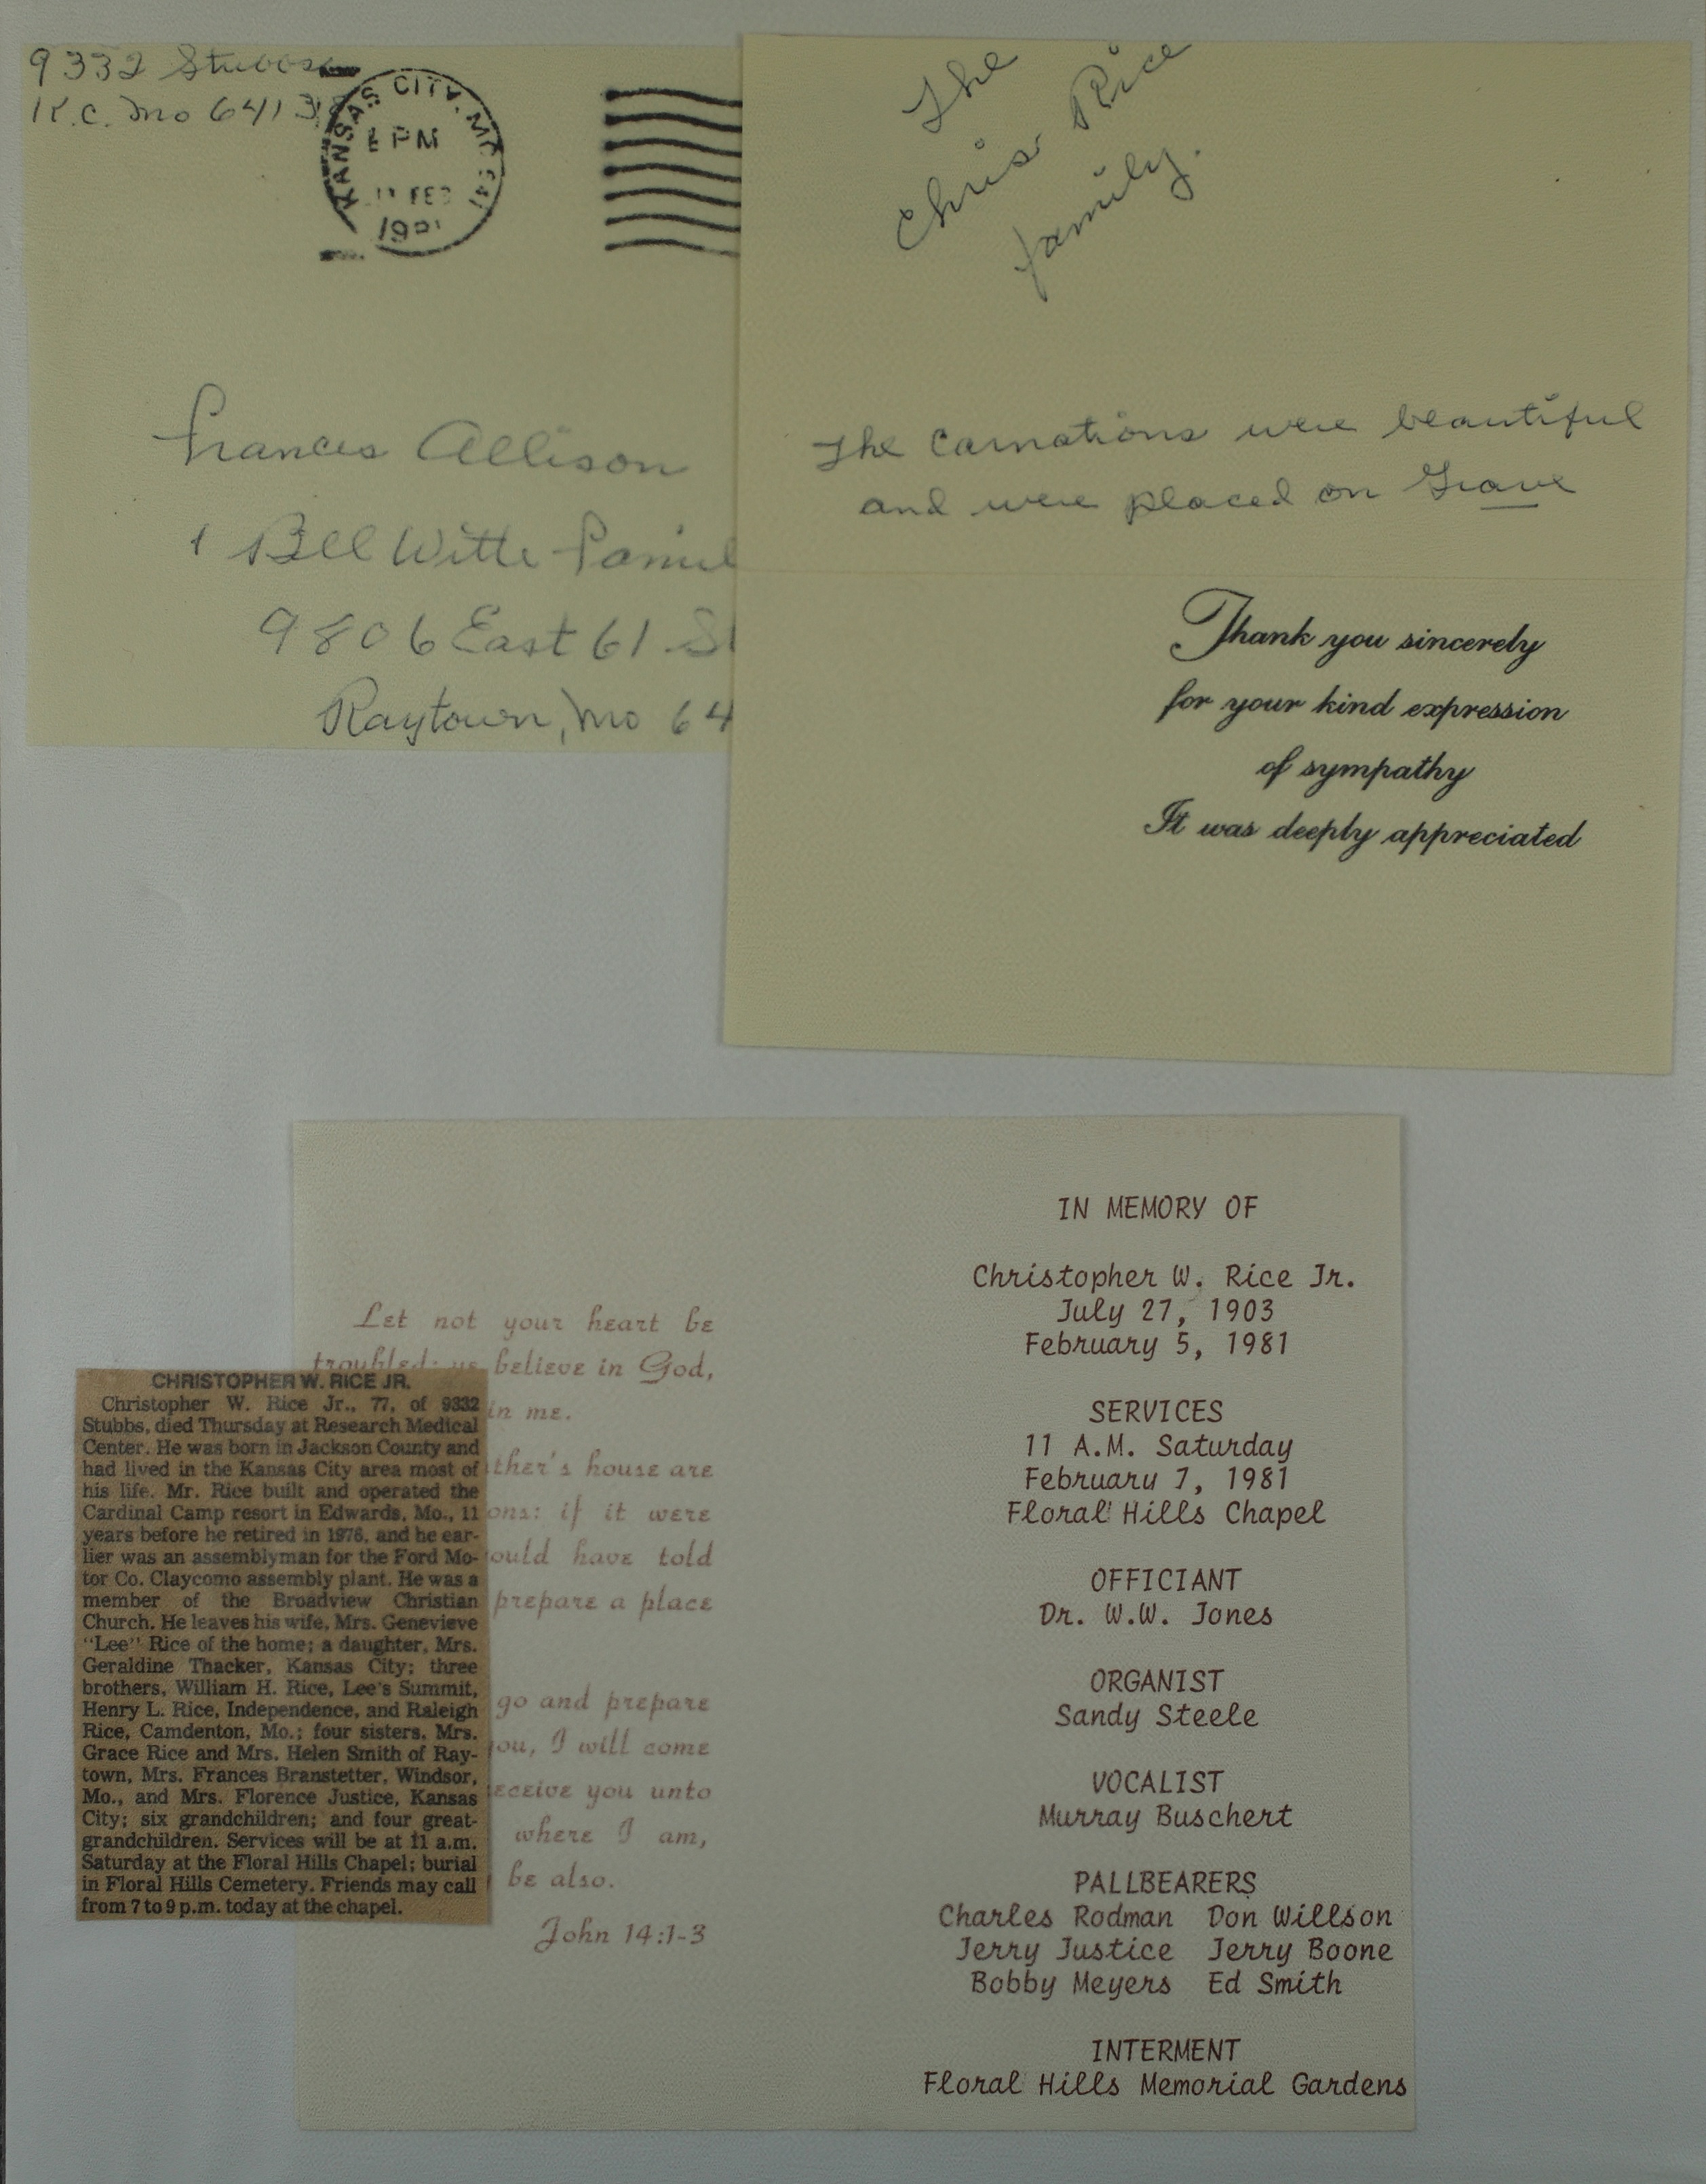 9332 Stubbs
K.C. Mo 64138
KANSAS CITY, MO 641
PM
FEB
Frances Allison
Bill Witte Famil
9806 East 61 St
Raytown, Mo 64
The
Chris Rice
family.
The Carnations were beautiful
and were placed on Grave
Thank you sincerely
for your kind expression
of sympathy
It was deeply appreciated
Let not your heart be
troubled: ye believe in God,
in me.
ther's house are
ons: if it were
ould have told
prepare a place
go and prepare
ou, I will come
eceive you unto
where I am,
be also.
John 14:1-3
CHRISTOPHER W. RICE JR.
Christopher W. Rice Jr., 77, of 9332
Stubbs, died Thursday at Research Medical
Center. He was born in Jackson County and
had lived in the Kansas City area most of
his life. Mr. Rice built and operated the
Cardinal Camp resort in Edwards, Mo., 11
years before he retired in 1976, and he ear-
lier was an assemblyman for the Ford Mo-
tor Co. Claycomo assembly plant. He was a
member of the Broadview Christian
Church. He leaves his wife, Mrs. Genevieve
"Lee" Rice of the home; a daughter, Mrs.
Geraldine Thacker, Kansas City; three
brothers, William H. Rice, Lee's Summit,
Henry L. Rice, Independence, and Raleigh
Rice, Camdenton, Mo.; four sisters, Mrs.
Grace Rice and Mrs. Helen Smith of Ray-
town, Mrs. Frances Branstetter, Windsor,
Mo., and Mrs. Florence Justice, Kansas
City; six grandchildren; and four great-
grandchildren. Services will be at 11 a.m.
Saturday at the Floral Hills Chapel; burial
in Floral Hills Cemetery. Friends may call
from 7 to 9 p.m. today at the chapel.
IN MEMORY OF
Christopher W. Rice Jr.
July 27, 1903
February 5, 1981
SERVICES
11 A.M. Saturday
February 7, 1981
Floral Hills Chapel
OFFICIANT
Dr. W.W. Jones
ORGANIST
Sandy Steele
VOCALIST
Murray Buschert
PALLBEARERS
Charles Rodman Don Willson
Jerry Justice Jerry Boone
Bobby Meyers Ed Smith
INTERMENT
Floral Hills Memorial Gardens